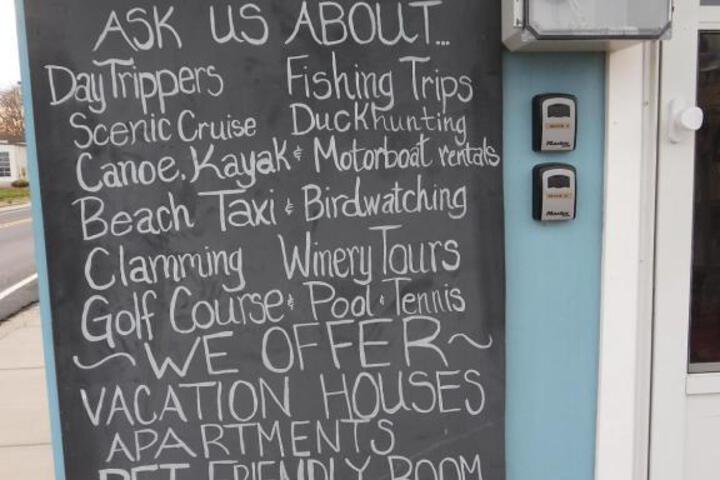 ASK US ABOUT...
DayTrippers Fishing Trips
Scenic Cruise Duckhunting
Canoe, Kayak & Motorboat rentals
Beach Taxi & Birdwatching
Clamming Winery Tours
Golf Course & Pool & Tennis
~ WE OFFER ~
VACATION HOUSES
APARTMENTS
PET FRIENDLY ROOM
Master
Master